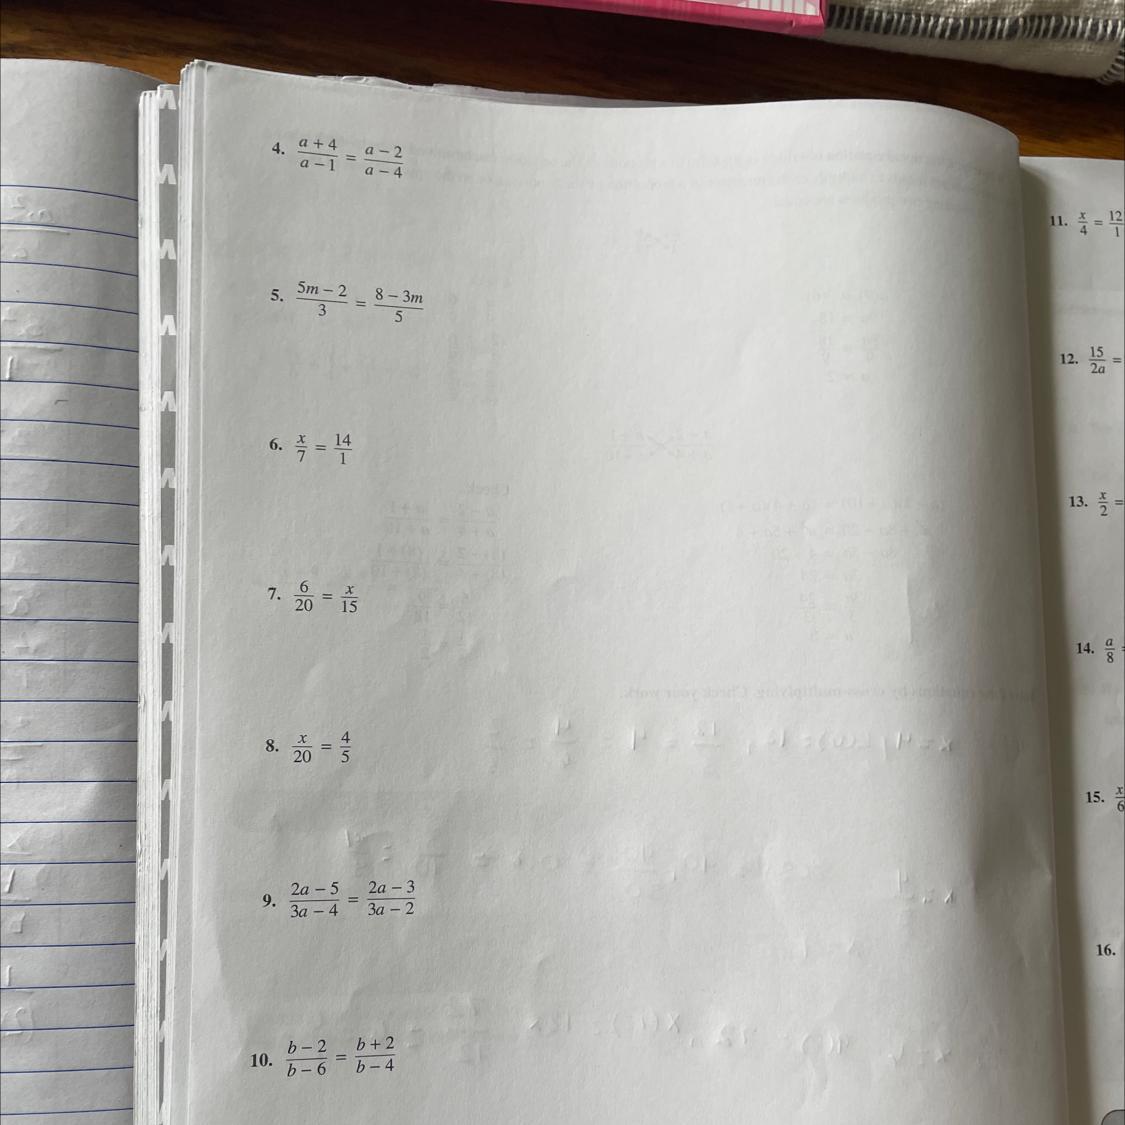 4. (a + 4)/(a − 1) = (a − 2)/(a − 4)
5. (5m − 2)/3 = (8 − 3m)/5
6. x/7 = 14/1
7. 6/20 = x/15
8. x/20 = 4/5
9. (2a − 5)/(3a − 4) = (2a − 3)/(3a − 2)
10. (b − 2)/(b − 6) = (b + 2)/(b − 4)
11. x/4 = 12/1
12. 15/2a =
13. x/2 =
14. a/8
15. x/6
16.